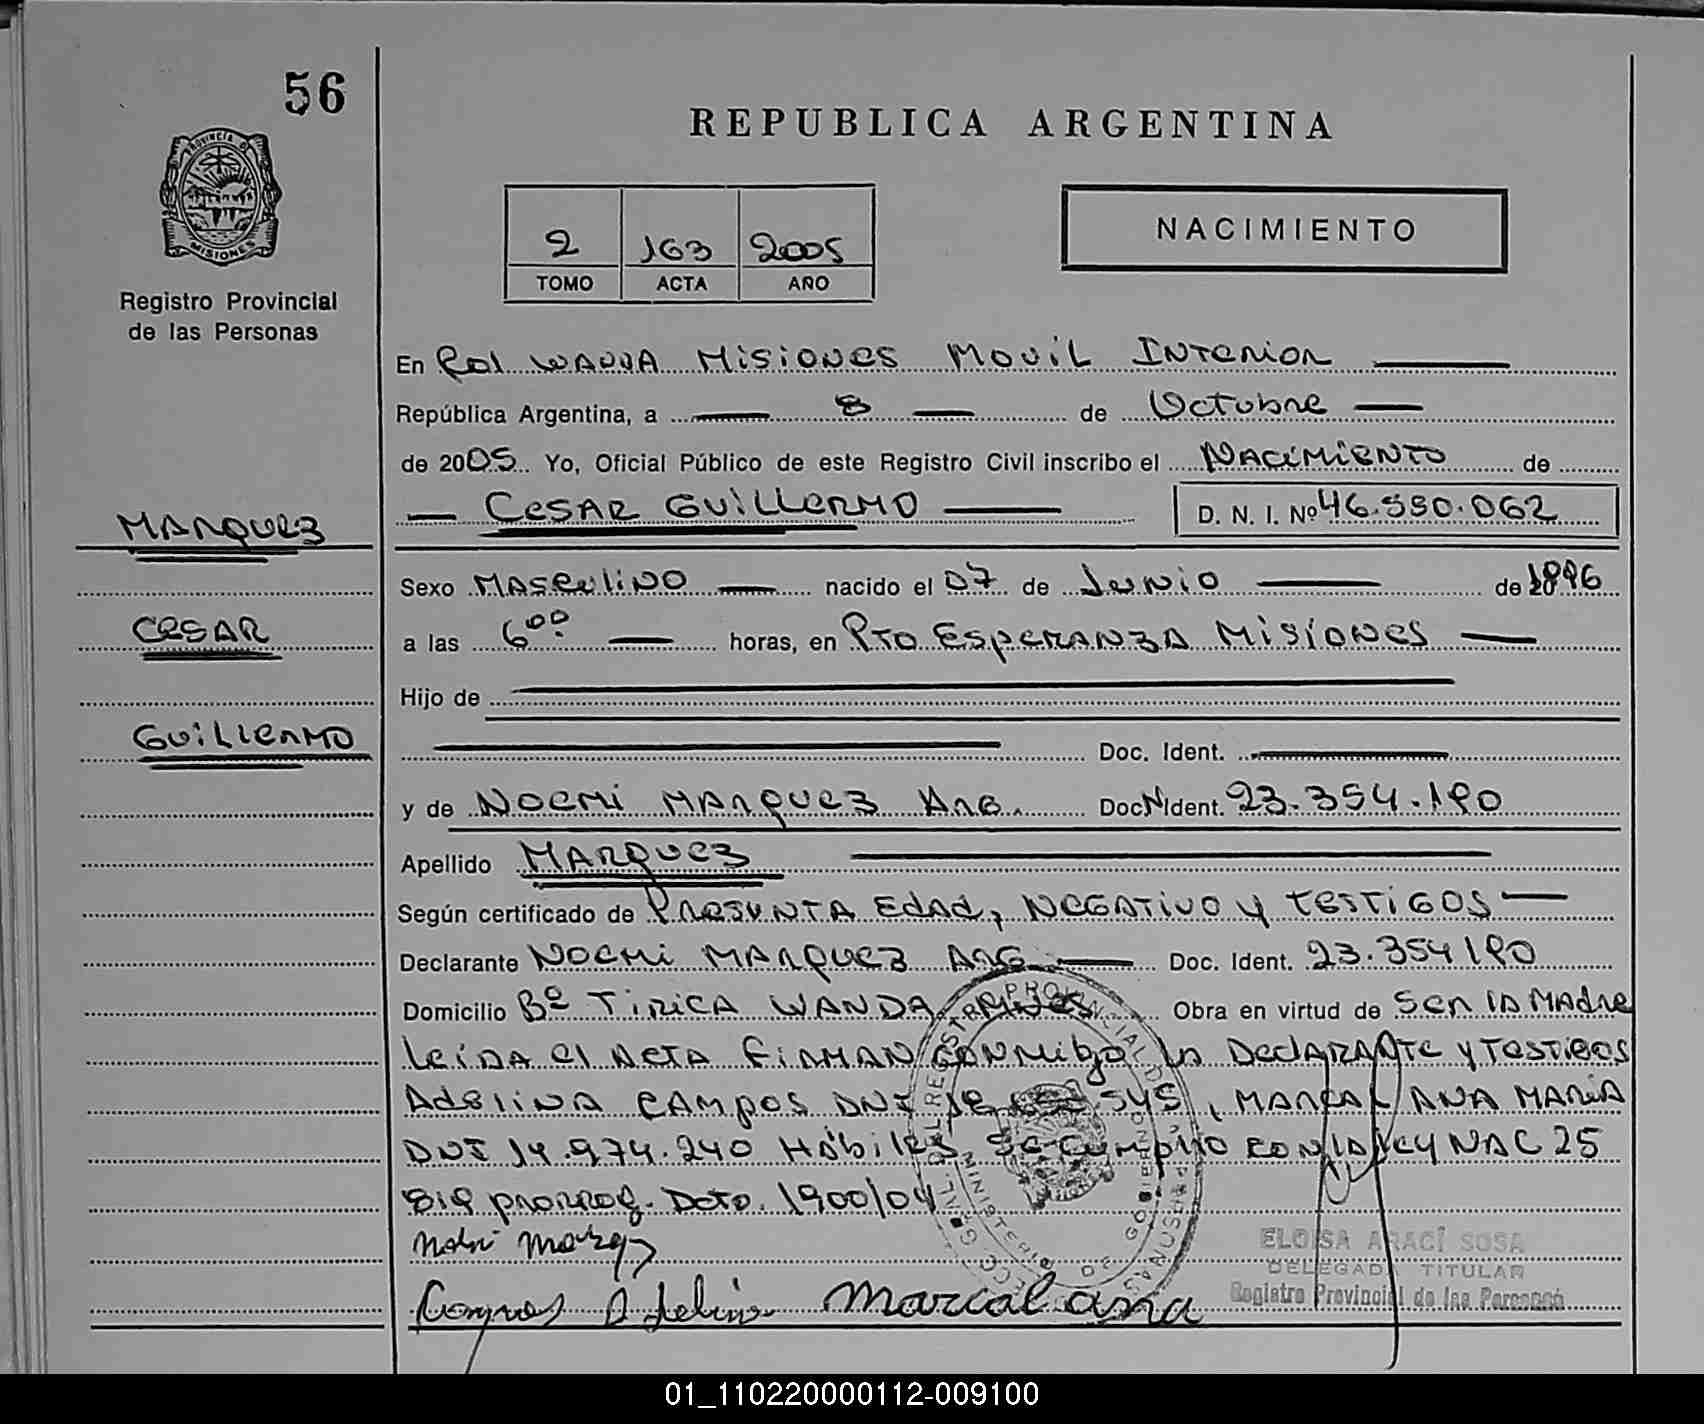 56
REPUBLICA ARGENTINA
PROVINCIA DE
MISIONES
Registro Provincial
de las Personas
NACIMIENTO
2 163 2005
TOMO ACTA AÑO
En Col WANDA MISIONES MOVIL INTERIOR
República Argentina, a 8 de Octubre
de 2005 Yo, Oficial Público de este Registro Civil inscribo el NACIMIENTO de
CESAR GUILLERMO D. N. I. Nº 46.550.062
MARQUEZ
CESAR
GUILLERMO
Sexo MASCULINO nacido el 07 de Junio de 1996
a las 6 00 horas, en Pto ESPERANZA MISIONES
Hijo de
Doc. Ident.
y de NOEMI MARQUEZ ARG. Doc. Ident. 23.354.190
Apellido MARQUEZ
Según certificado de PRESUNTA EDAD, NEGATIVO Y TESTIGOS
Declarante NOEMI MARQUEZ ARG Doc. Ident. 23.354190
Domicilio Bº TIRICA WANDA Mnes Obra en virtud de SER LA MADRE
LEIDA EL ACTA FIRMAN CONMIGO LA DECLARANTE Y TESTIGOS
ADELINA CAMPOS DNI 545, MARCAL ANA MARIA
DNI 14.974.240 HÁBILES SE CUMPLIO CON LA LEY NAC 25
819 PRORROG. Dcto. 1900/04
Campos Adelina Marcal ana
DIRECC. GRAL. DEL REGISTRO PROVINCIAL DE LAS PERSONAS
MINISTERIO DE GOBIERNO
ELOISA ARACÍ SOSA
DELEGADA TITULAR
Registro Provincial de las Personas
01_110220000112-009100